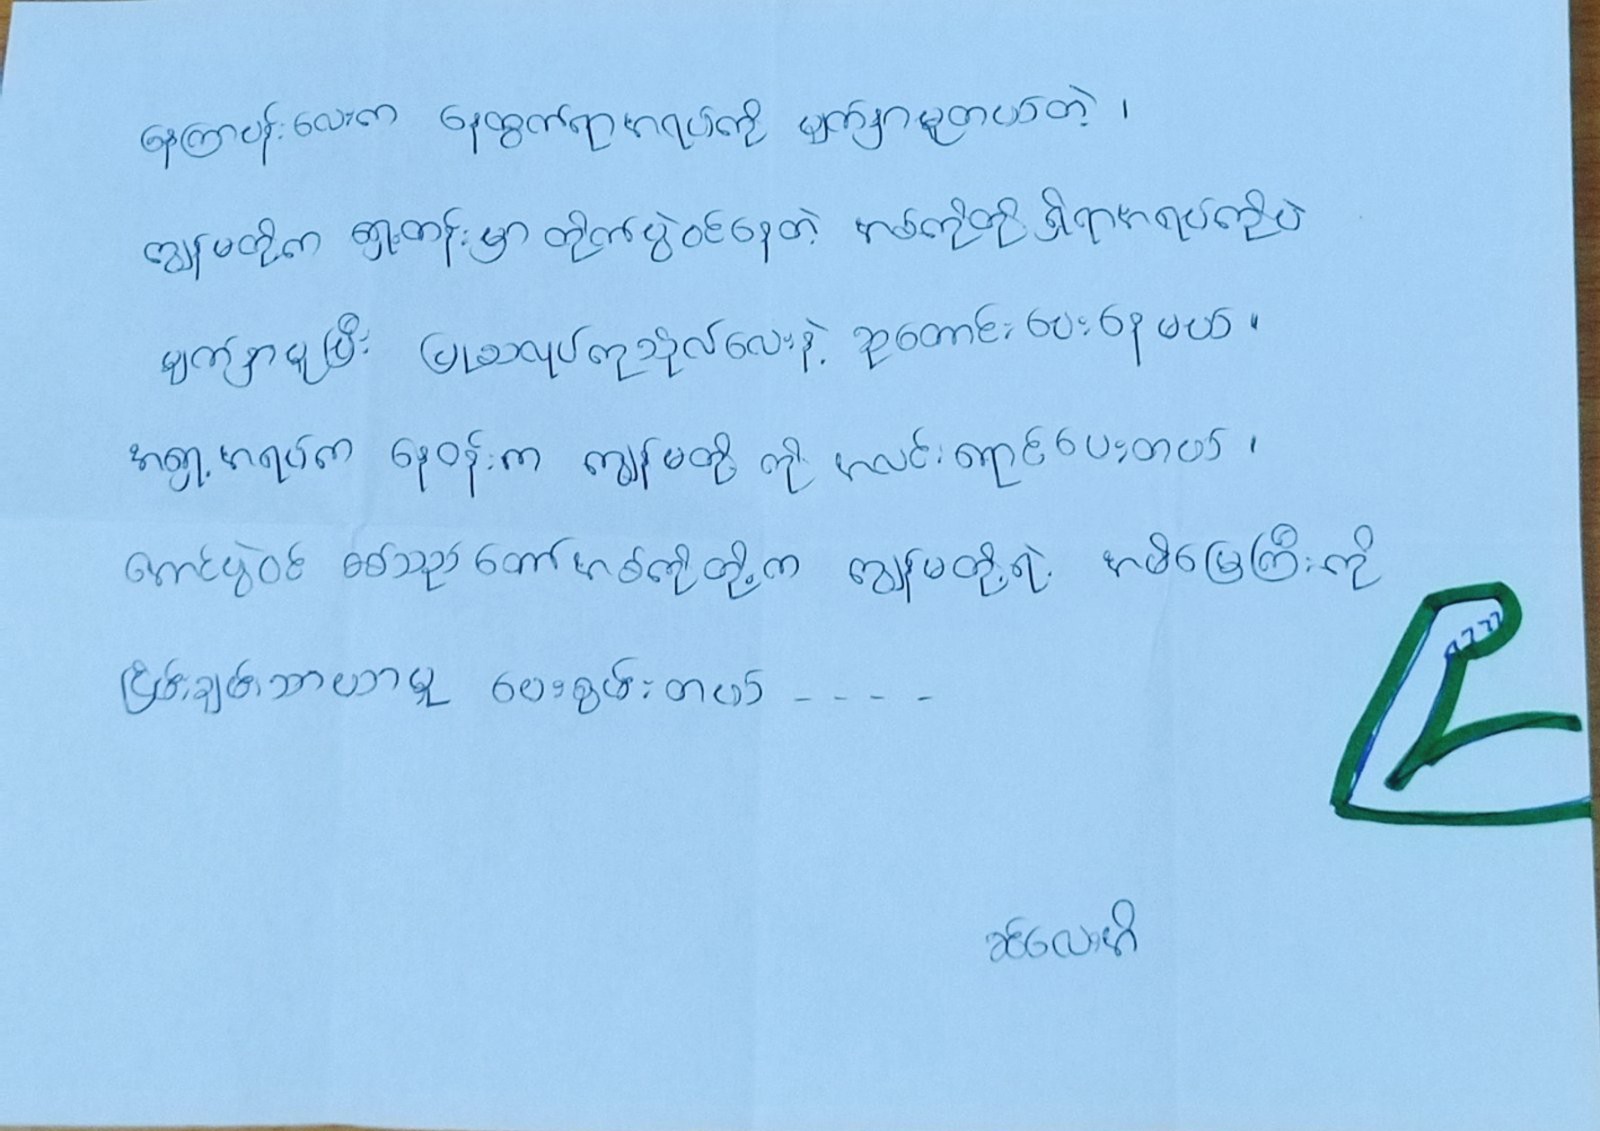 နေကြာပန်းလေးက နေထွက်ရာအရပ်ကို မျက်နှာမူတယ်တဲ့ ၊
ကျွန်မတို့က ရှေ့တန်းမှာ တိုက်ပွဲဝင်နေတဲ့ အစ်ကိုတို့ ရှိရာအရပ်ကိုပဲ
မျက်နှာမူပြီး ပြုသလုပ်ကုသိုလ်လေးနဲ့ ဆုတောင်းပေးနေမယ် ။
အရှေ့အရပ်က နေဝန်းက ကျွန်မတို့ ကို အလင်းရောင်ပေးတယ် ၊
တောင်ပွဲဝင် စစ်သည်တော်အစ်ကိုတို့က ကျွန်မတို့ရဲ့ အမိမြေကြီးကို
ငြိမ်းချမ်းသာယာမှု ပေးစွမ်းတယ် - - - -